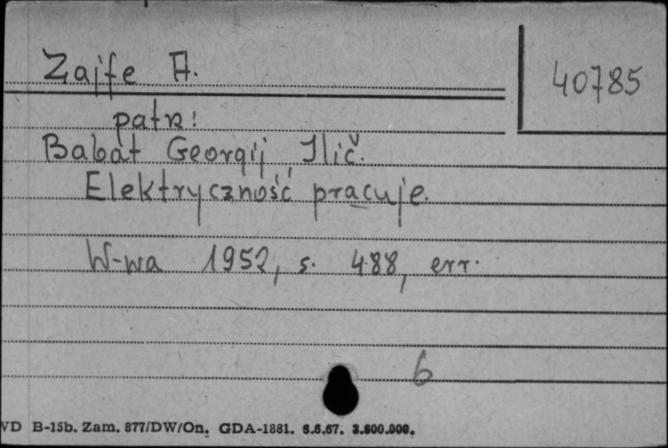 Zajfe A.
40785
patrz:
Babat Georgij Ilič.
Elektryczność pracuje.
W-wa 1952, s. 488, err.
6
VD B-15b. Zam. 877/DW/On. GDA-1881. 6.6.67. 3.600.000.